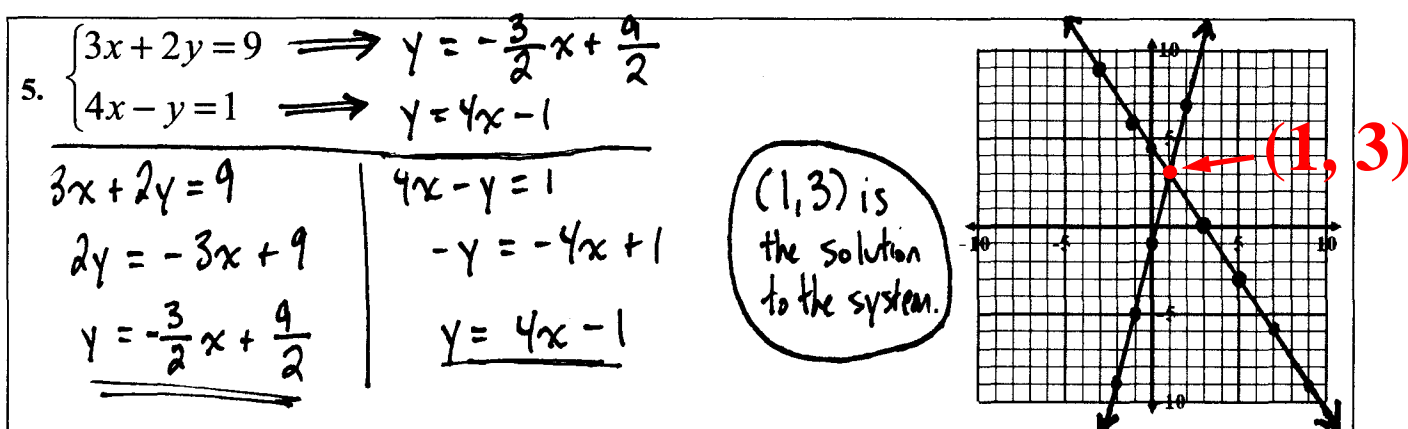 5. {3x + 2y = 9 ⟹ y = -3/2 x + 9/2
{4x − y = 1 ⟹ y = 4x − 1
3x + 2y = 9
2y = -3x + 9
y = -3/2 x + 9/2
4x − y = 1
-y = -4x + 1
y = 4x − 1
(1,3) is
the solution
to the system.
(1, 3)
10
5
-10 -5 5 10
-5
-10